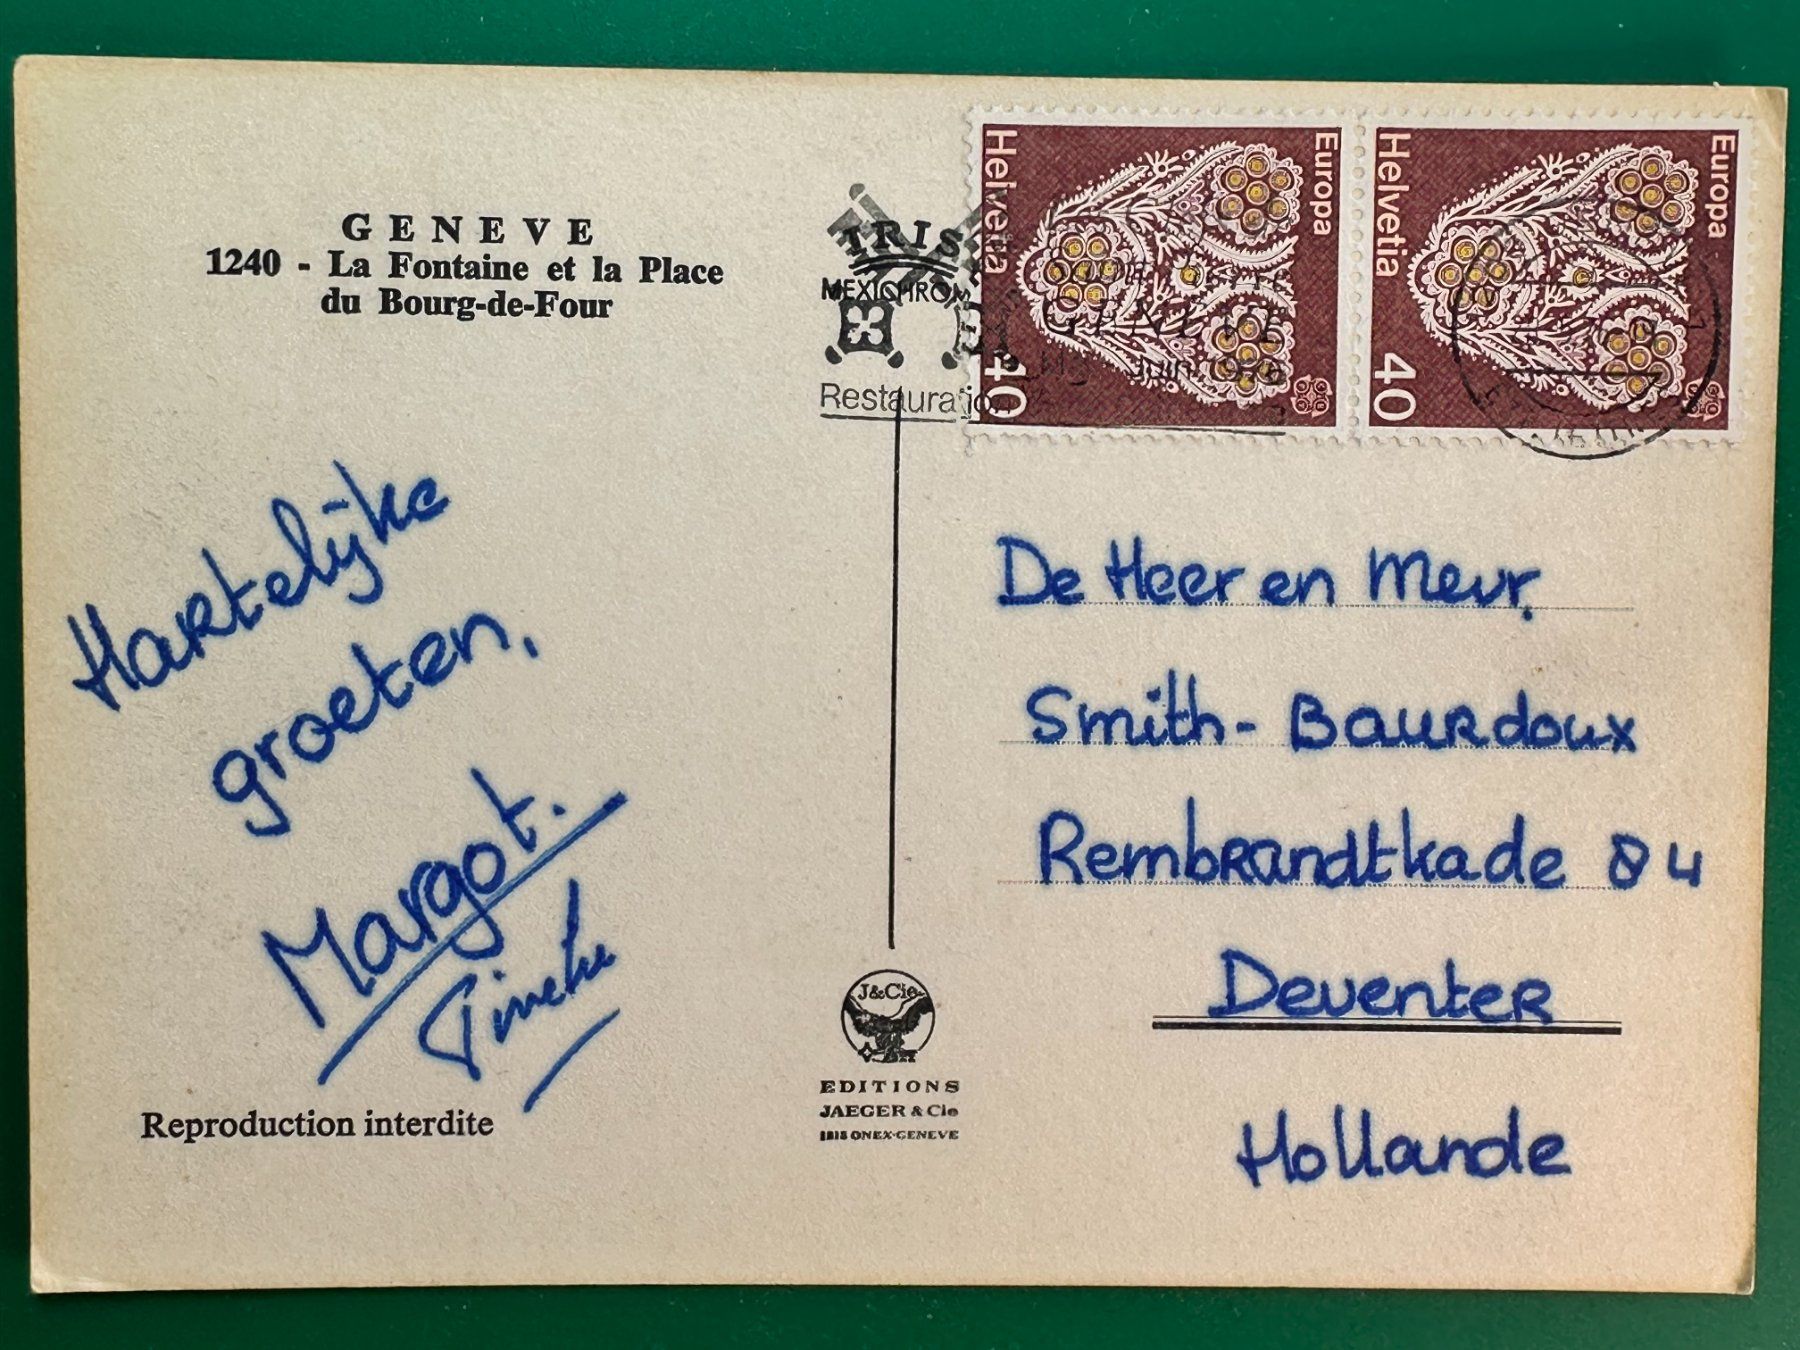 GENEVE
1240 - La Fontaine et la Place
du Bourg-de-Four
IRIS
MEXICHROM
Restauration
GENEVE
Juin 1976
Helvetia
Europa
40
Helvetia
Europa
40
Hartelijke
groeten,
Margot.
Tineke
Reproduction interdite
J&Cie
EDITIONS
JAEGER & Cie
IRIS ONEX-GENEVE
De Heer en Mevr.
Smith-Baurdoux
Rembrandtkade 84
Deventer
Hollande